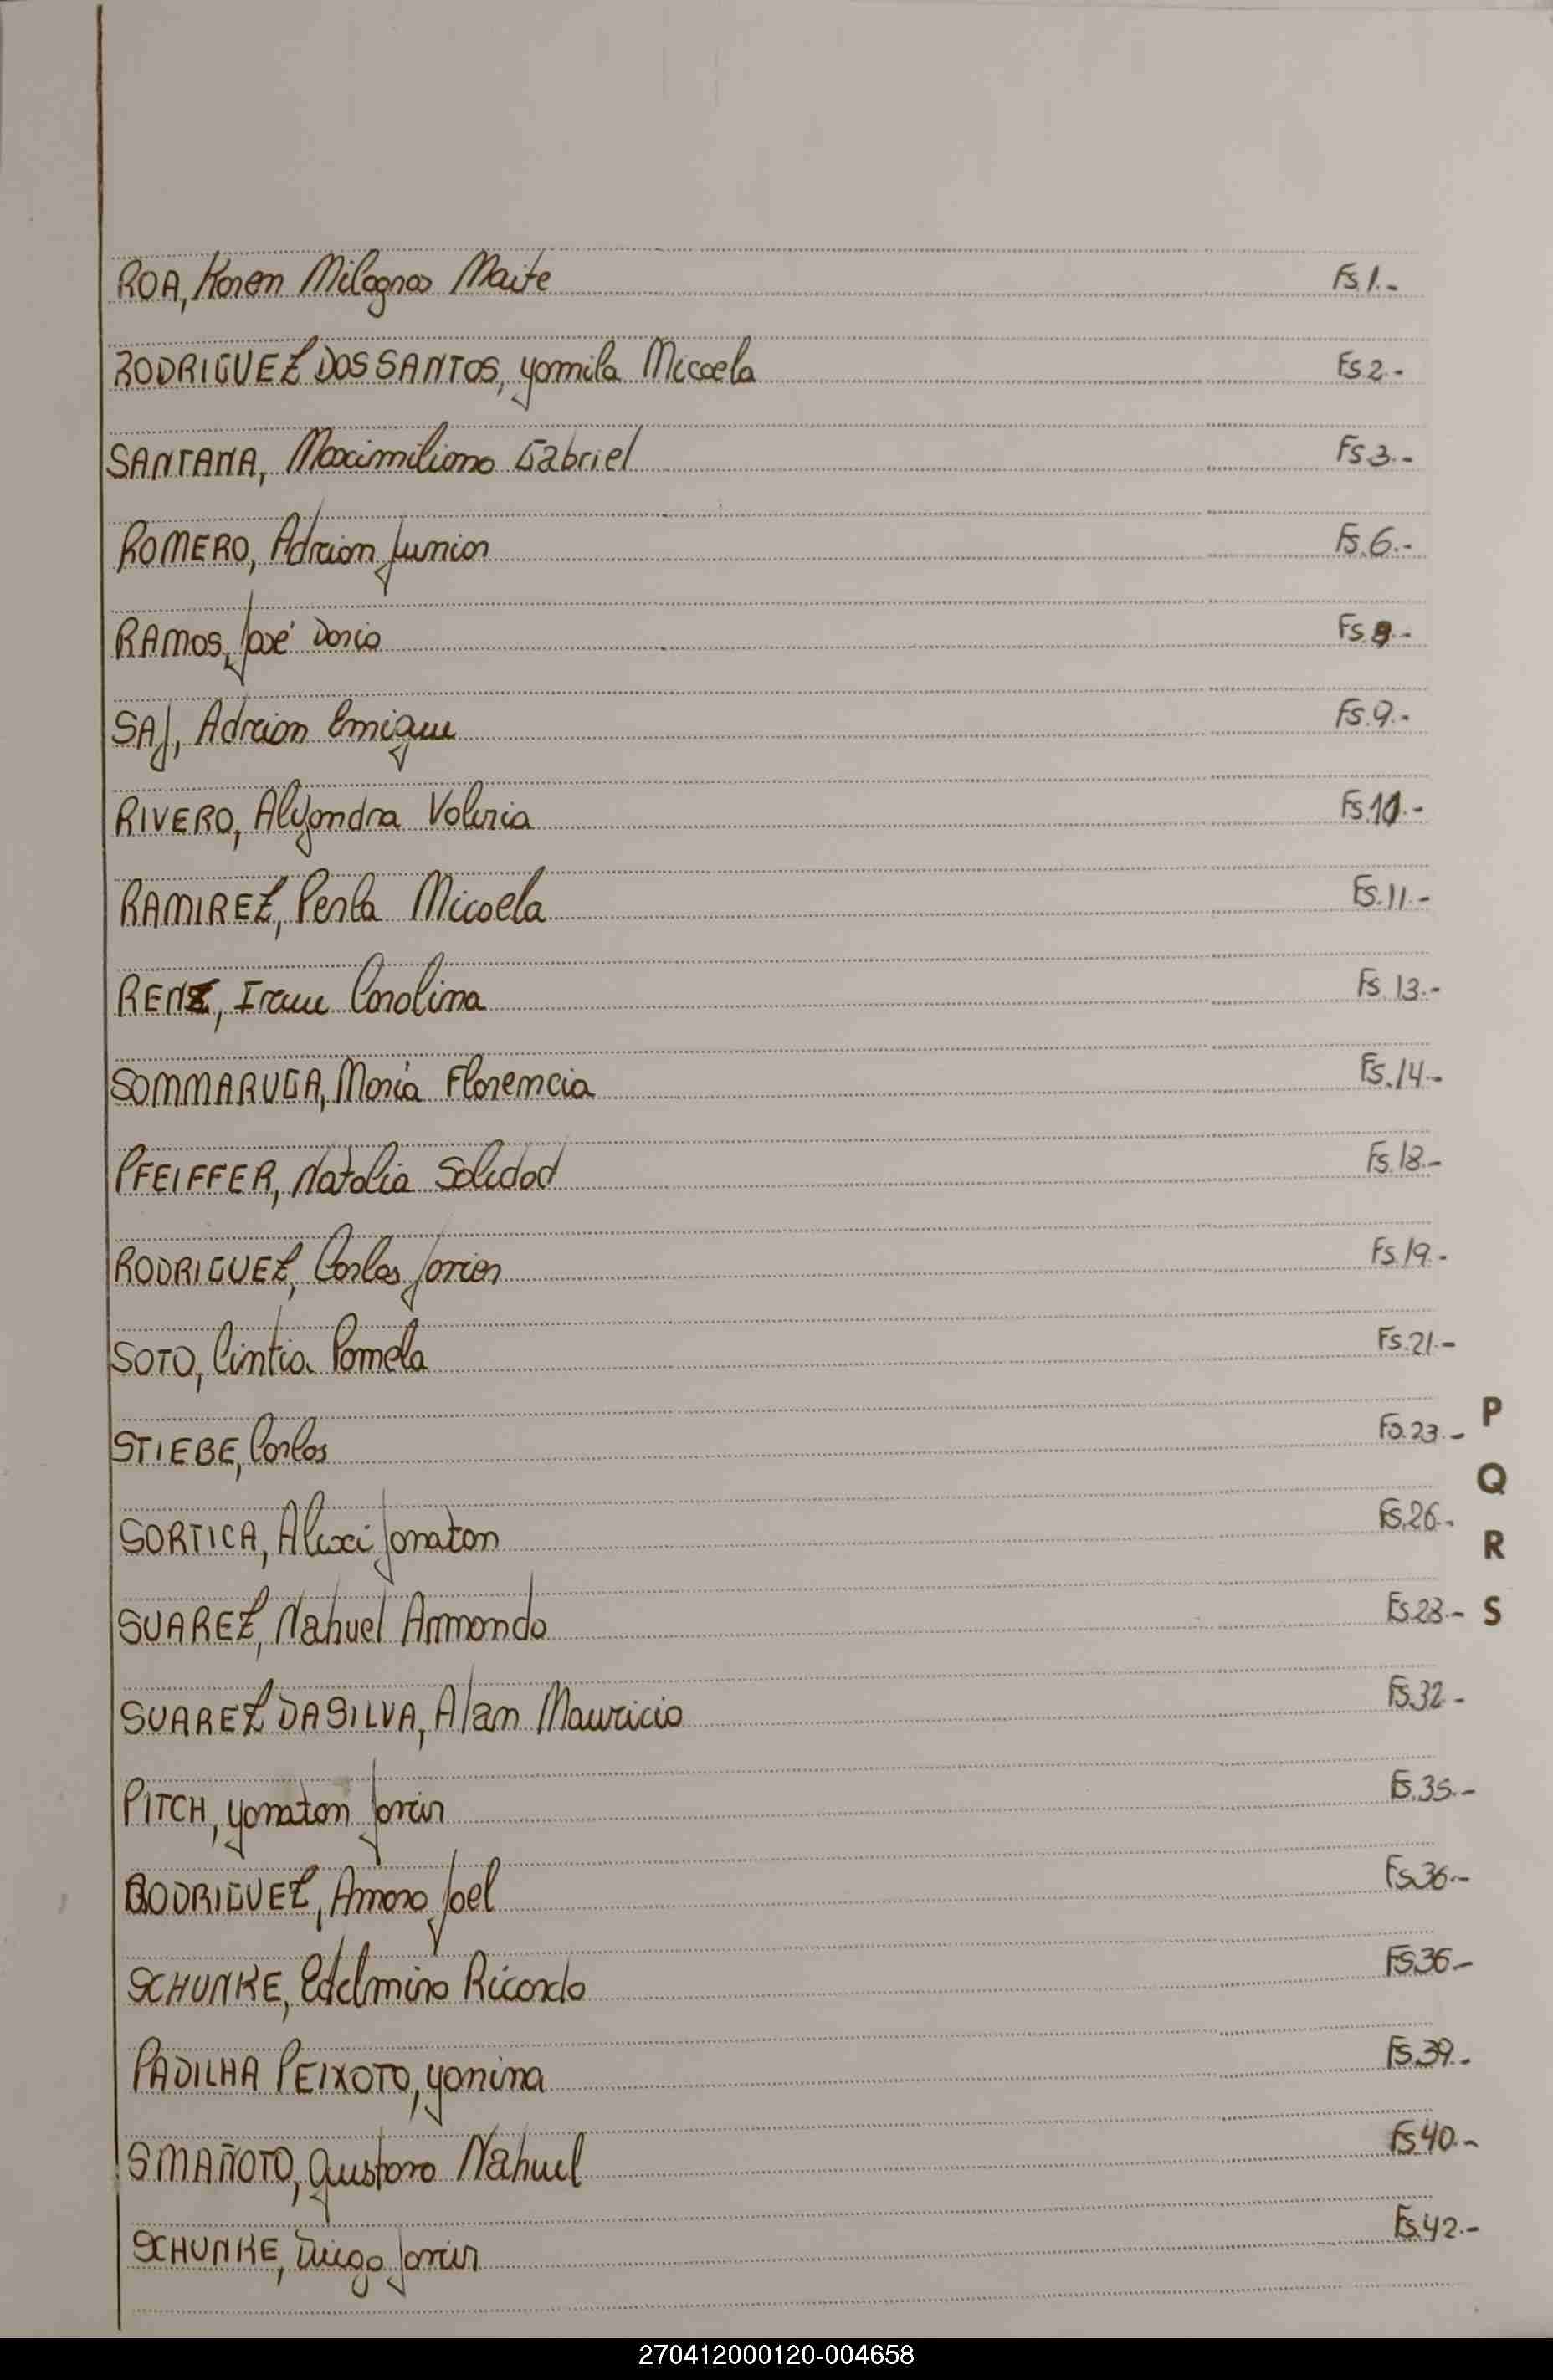 ROA, Karen Milagros Maite Fs.1.-
RODRIGUEZ DOS SANTOS, Yamila Micaela Fs.2.-
SANTANA, Maximiliano Gabriel Fs.3.-
ROMERO, Adrian Junior Fs.6.-
RAMOS, José Dario Fs.8.-
SAJ, Adrian Enrique Fs.9.-
RIVERO, Alejandra Valeria Fs.11.-
RAMIREZ, Perla Micaela Fs.11.-
RENZ, Irene Carolina Fs.13.-
SOMMARUGA, María Florencia Fs.14.-
PFEIFFER, Natalia Soledad Fs.18.-
RODRIGUEZ, Carlos Javier Fs.19.-
SOTO, Cintia Pamela Fs.21.-
STIEBE, Carlos Fs.23.-
SORTICA, Alexi Jonatan Fs.26.-
SUAREZ, Nahuel Armando Fs.28.-
SUAREZ DA SILVA, Alan Mauricio Fs.32.-
PITCH, Yonatan Javier Fs.35.-
RODRIGUEZ, Amaro Joel Fs.36.-
SCHUNKE, Edelmiro Ricardo Fs.36.-
PADILHA PEIXOTO, Yanina Fs.39.-
SMAÑOTO, Gustavo Nahuel Fs.40.-
SCHUNKE, Diego Javier Fs.42.-
P
Q
R
S
270412000120-004658